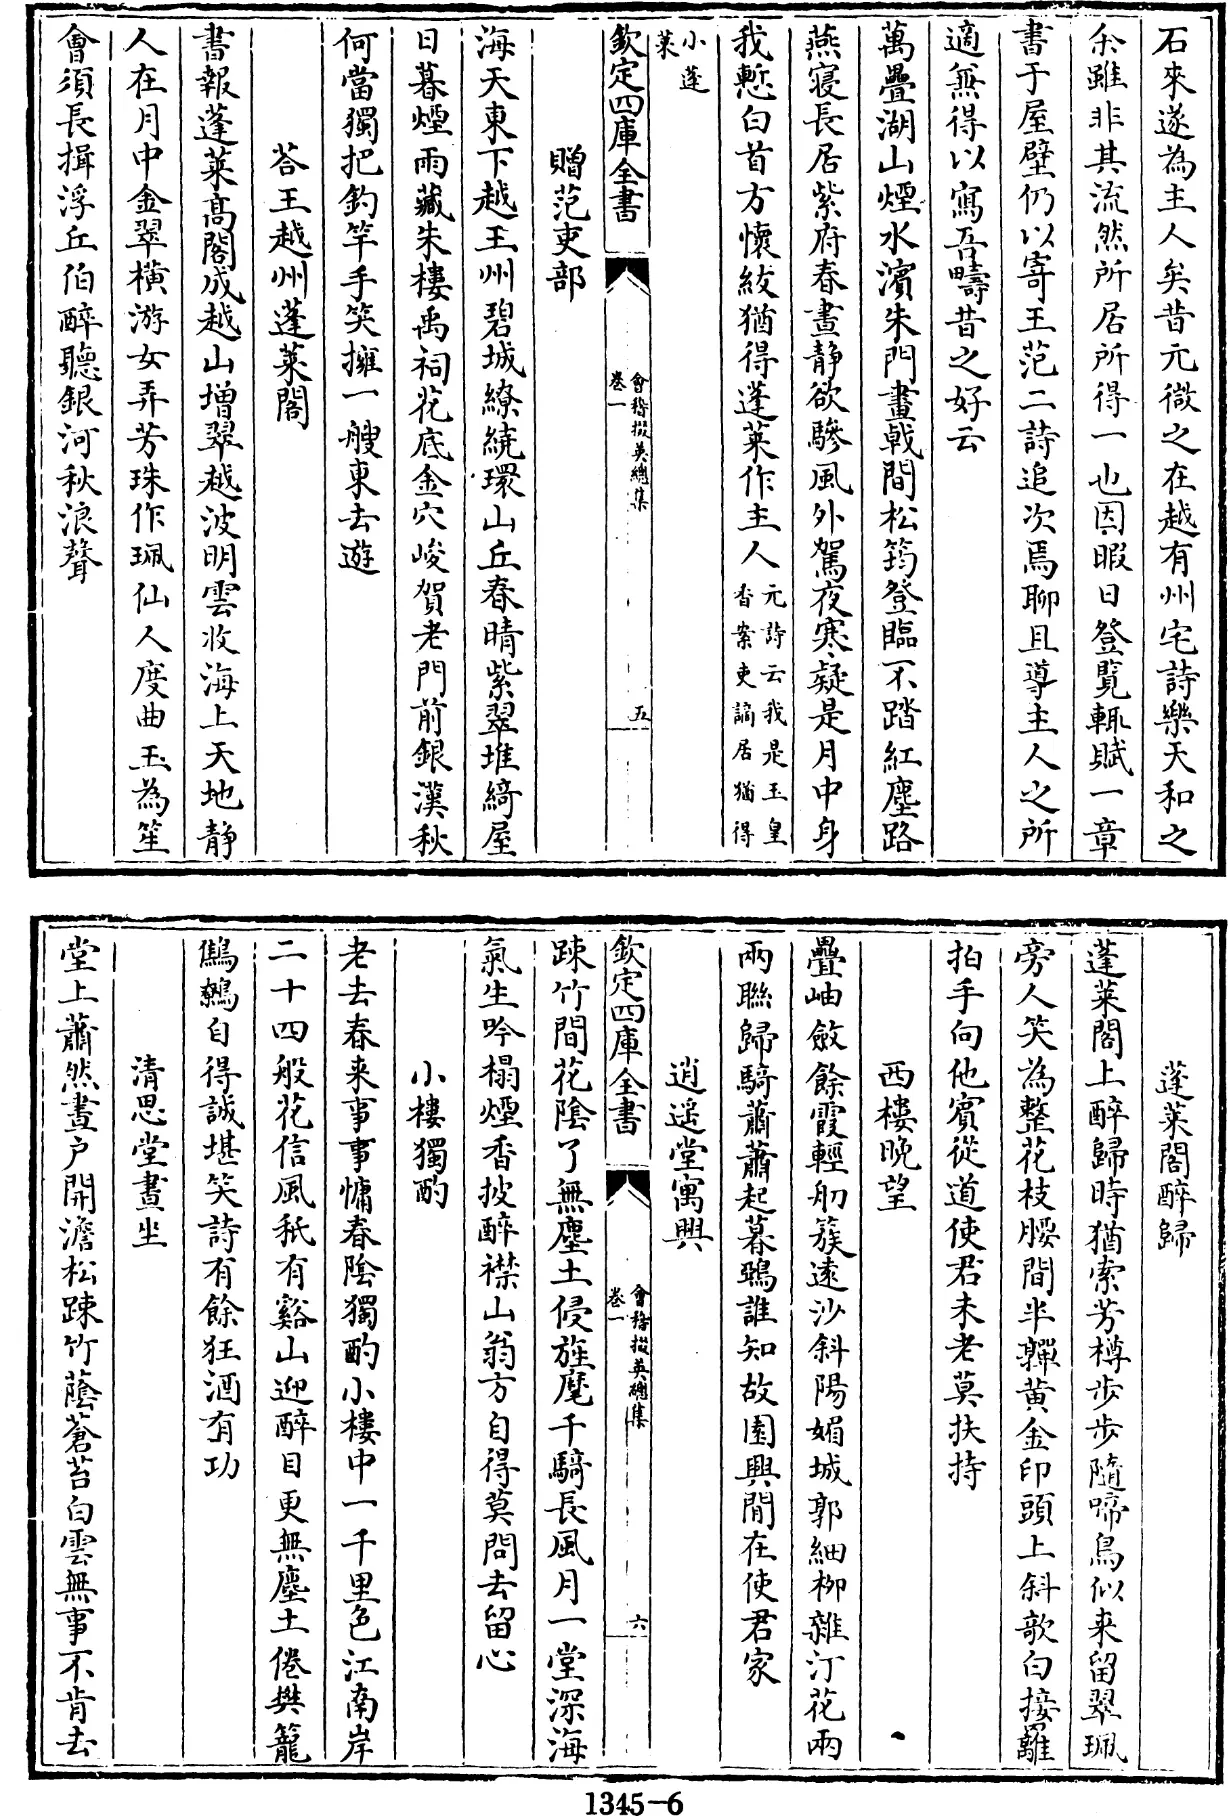 石來遂為主人矣昔元微之在越有州宅詩樂天和之
余雖非其流然所居所得一也因暇日登覧輒賦一章
書于屋壁仍以寄王范二詩追次焉聊且導主人之所
適無得以寫吾疇昔之好云
萬疊湖山煙水濱朱門畫戟間松筠登臨不踏紅塵路
燕寢長居紫府春晝靜欲驂風外駕夜寒疑是月中身
我慙白首方懷紱猶得蓬萊作主人元詩云我是玉皇
香案吏謫居猶得
小蓬
萊
欽定四庫全書
會稽掇英總集
卷一
五
贈范吏部
海天東下越王州碧城繚繞環山丘春晴紫翠堆綺屋
日暮煙雨藏朱樓禹祠花底金穴峻賀老門前銀漢秋
何當獨把釣竿手笑擁一艘東去遊
荅王越州蓬萊閣
書報蓬萊高閣成越山增翠越波明雲收海上天地静
人在月中金翠横游女弄芳珠作珮仙人度曲玉為笙
會須長揖浮丘伯醉聽銀河秋浪聲
蓬萊閣醉歸
蓬萊閣上醉歸時猶索芳樽步步隨啼鳥似来留翠珮
旁人笑為整花枝腰間半嚲黄金印頭上斜欹白接䍦
拍手向他賓從道使君未老莫扶持
西樓晚望
疊岫斂餘霞輕舠簇逺沙斜陽媚城郭細栁雜汀花兩
兩聮歸騎蕭蕭起暮鵶誰知故園興閒在使君家
逍遥堂寓興
疎竹間花陰了無塵土侵旌麾千騎長風月一堂深海
氣生吟榻煙香披醉襟山翁方自得莫問去留心
欽定四庫全書
會稽掇英總集
卷一
六
小樓獨酌
老去春来事事慵春陰獨酌小樓中一千里色江南岸
二十四般花信風秖有谿山迎醉目更無塵土倦樊籠
鷦鷯自得誠堪笑詩有餘狂酒有功
清思堂晝坐
堂上蕭然晝户開澹松疎竹蔭蒼苔白雲無事不肯去
1345-6